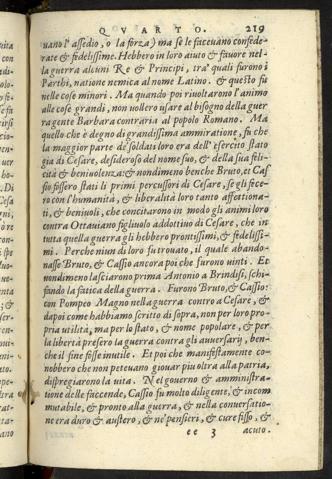 QVARTO. 219
uano l'assedio, o la forza) ma se le faceuano confede-
rate & fidelissime. Hebbero in loro aiuto & fauore nel-
la guerra alcuni Re & Principi, tra' quali furono i
Parthi, natione nemica al nome Latino. & questo fu
nelle cose minori. Ma quando poi riuoltarono l'animo
alle cose grandi, non uollero usare al bisogno della guer
ra gente Barbara contraria al popolo Romano. Ma
quello che è degno di grandissima ammiratione, fu che
la maggior parte de' soldati loro era dell'esercito stato
gia di Cesare, desideroso del nome suo, & della sua feli-
cità & beniuolenza: & nondimeno benche Bruto, et Cas
sio fossero stati li primi percussori di Cesare, se gli fece-
ro con l'humanità, & liberalità loro tanto affettiona-
ti, & beniuoli, che concitarono in modo gli animi loro
contra Ottauiano figliuolo addottiuo di Cesare, che in
tutta quella guerra gli hebbero prontissimi, & fidelissi-
mi. Perche niun di loro fu tronato, il quale abando-
nasse Bruto, & Cassio ancora poi che furono uinti. Et
nondimeno lasciarono prima Antonio a Brindisi, schi-
fando la fatica della guerra. Furono Bruto, & Cassio:
con Pompeo Magno nella guerra contro a Cesare, &
dapoi come habbiamo scritto di sopra, non per loro pro-
pria utilità, ma per lo stato, & nome popolare, & per
la libertà presero la guerra contra gli auuersarij, ben-
che il fine fosse inutile. Et poi che manifestamente co-
nobbero che non poteuano giouar piu oltra alla patria,
dispregiarono la uita. Nel gouerno & amministra-
tione delle faccende, Cassio fu molto diligente, & incom
mutabile, & pronto alla guerra, & nella conuersatio-
ne era duro & austero, & ne' pensieri, & cure fisso, &
ee 3 acuto.